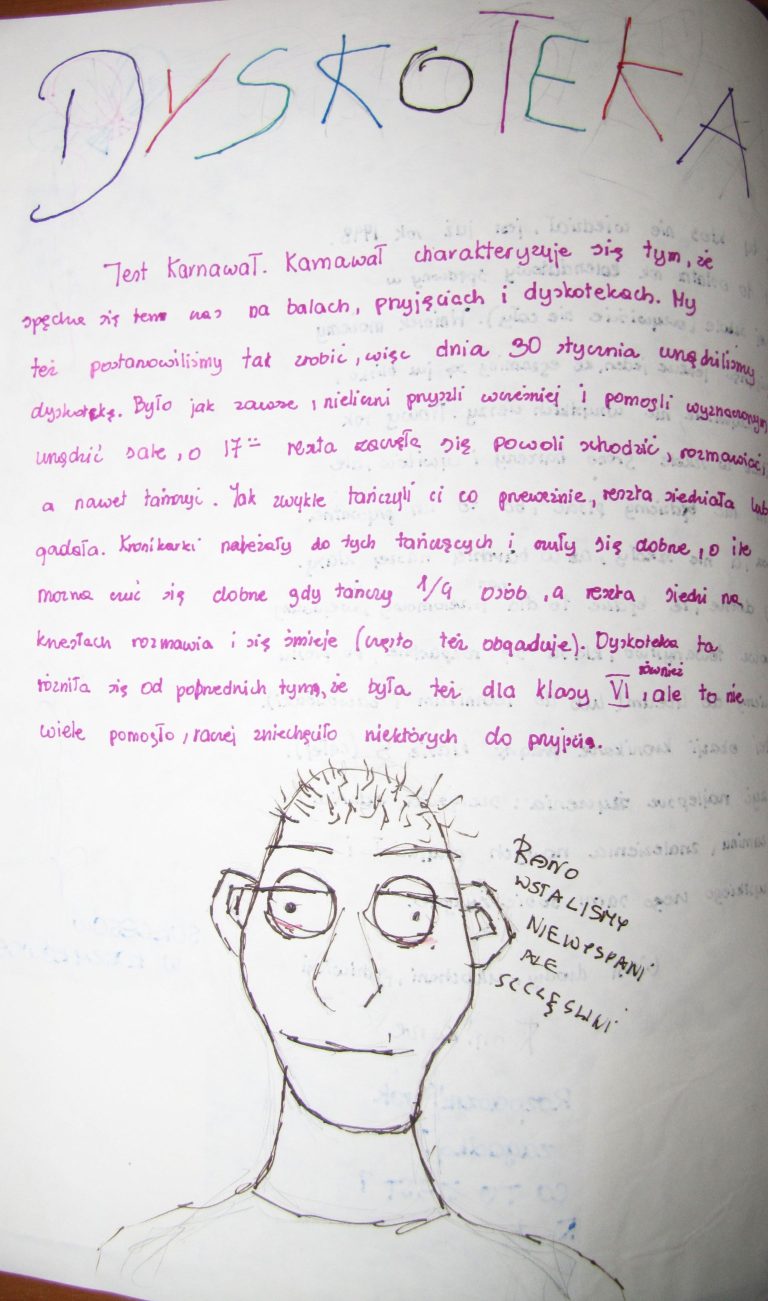 DYSKOTEKA
Jest Karnawał. Karnawał charakteryzuje się tym, że
spędza się ten czas na balach, przyjęciach i dyskotekach. My
też postanowiliśmy tak zrobić, więc dnia 30 stycznia urządziliśmy
dyskotekę. Było jak zawsze, nieliczni przyszli wcześniej i pomogli wyznaczonym
urządzić salę, o 17⁰⁰ reszta zaczęła się powoli schodzić, rozmawiać,
a nawet tańczyć. Jak zwykle tańczyli ci co przeważnie, reszta siedziała lub
gadała. Kronikarki należały do tych tańczących i czuły się dobrze, o ile
można czuć się dobrze gdy tańczy 1/4 osób, a reszta siedzi na
krzesłach rozmawia i się śmieje (często też obgaduje). Dyskoteka ta
różniła się od poprzednich tym, że była też dla klasy VI również, ale to nie
wiele pomogło, raczej zniechęciło niektórych do przyjścia.
RANO
WSTALIŚMY
NIEWYSPANI
ALE
SZCZĘŚLIWI